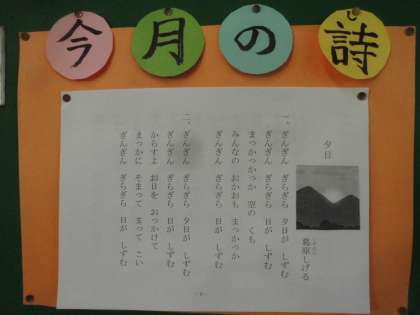 今月の詩
し
夕日
葛原しげる
一、ぎんぎん ぎらぎら 夕日が しずむ
ぎんぎん ぎらぎら 日が しずむ
まっかっかっか 空の くも
みんなの おかおも まっかっか
ぎんぎん ぎらぎら 日が しずむ
二、ぎんぎん ぎらぎら 夕日が しずむ
ぎんぎん ぎらぎら 日が しずむ
からすよ お日を おっかけて
まっかに そまって まって こい
ぎんぎん ぎらぎら 日が しずむ